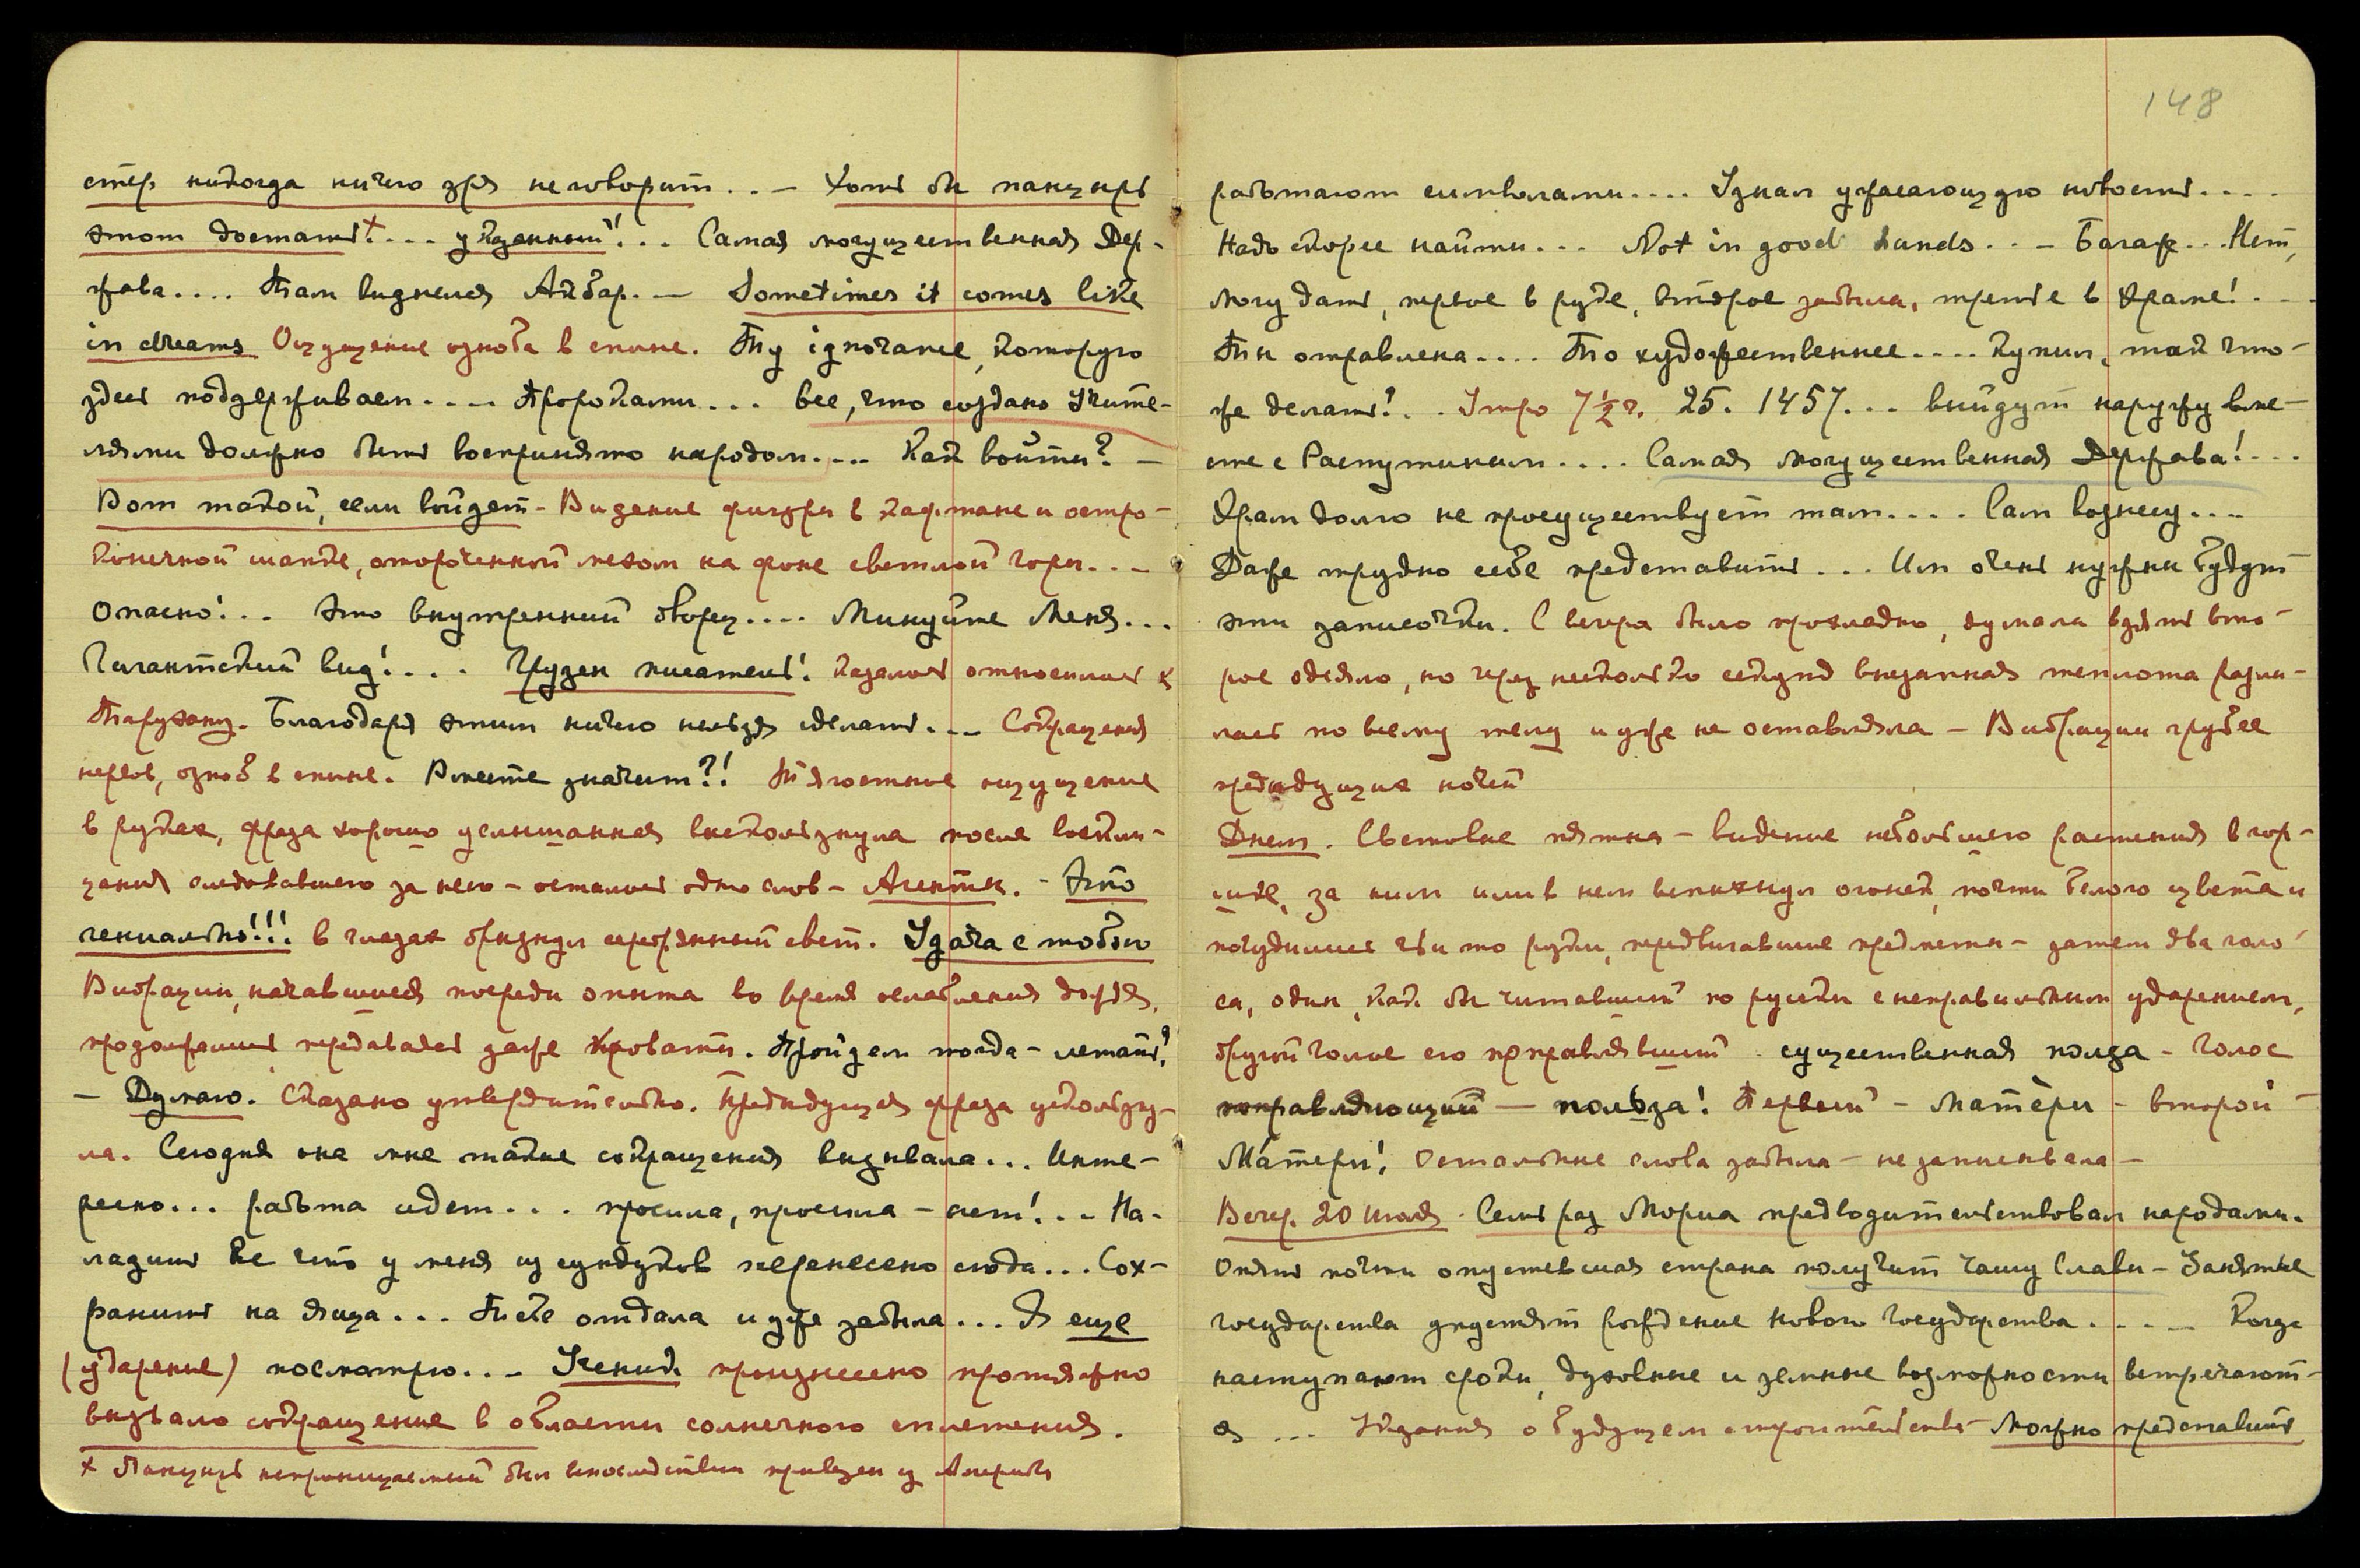 стер никогда ничего зря не говорит... — Хоть бы панцырь
этот достать!+... указанный"... Самая могущественная Дер-
жава.... Там виднелся Акбар. — Sometimes it comes like
in dreams Ощущение озноба в спине. Ту ignorance, которую
здесь поддерживаем.... Пророками... все, что создано Учите-
лями должно быть воспринято народом.... Как войти? —
Вот такой, если войдет - Видение фигуры в кафтане и остро-
конечной шапке, отороченной мехом на фоне светлой горы...
Опасно!.. Это внутренний дворец.... Минуйте Меня...
Гигантский вид!.... Грузен писатель! Казалось относилось к
Тарухану. Благодаря этим ничего нельзя сделать.... Сокращения
нервов, озноб в спине. Вместе значит?! Тягостное ощущение
в руках, фраза хорошо услышанная ускользнула после восклиц-
цания следовавшего за нею - осталось одно слово - Агенты. - Это
гениально!!! в глазах брызнул серебрянный свет. Удача с тобою
Вибрации, начавшиеся посреди опыта во время ослабления дождя,
продолжались, передавалась даже кровати. Пройдем тогда - летать?
— Думаю. Сказано утвердительно. Предыдущая фраза ускользну-
ла. Сегодня она мне такие сокращения вызывала... Инте-
ресно... работа идет... просила, просила - нет!... На-
ладить все что у меня из сундуков перенесено сюда... Сох-
ранить на яица... Тебе отдала и уже забыла... Я еще
(ударение) посмотрю... Ученик произнесено протяжно
вызвало сокращение в области солнечного сплетения.
+ Панцырь непроницаемый был впоследствии привезен из Америки
148
работают символами.... Узнал ужасающую новость....
Надо скорее найти... Not in good hands... — Багаж... Нет,
могу дать, первое в руде, второе забыла, третье в Храме!...
Ты отравлена.... То художественнее.... Купил, так что-
же делать?.. Утро 7½ ч. 25. 1457... выйдут наружу вме-
сте с Распутиным.... Самая могущественная Держава!...
Храм долго не просуществует там.... Сам вознесу....
Даже трудно себе представить... Им очень нужны будут
эти записочки. С вечера было прохладно, думала взять вто-
рое одеяло, но через несколько секунд внезапная теплота разли-
лась по всему телу и уже не оставляла — Вибрации грубее
предыдущих ночей
Днем. Световые пятна — видение небольшого растения в гор-
шке, за ним или в нем вспыхнул огонек, почти белого цвета и
почудились чьи то руки, передвигавшие предметы — затем два голо-
са, один, как бы читавший по русски с неправильным ударением,
другой голос его поправлявший существенная полза - голос
поправляющий — польза! Первый - Матèри - второй -
Мáтери! Остальные слова забыла — не записывала —
Вечер. 20 Июля. Семь раз Мориа предводительствовал народами.
Опять почти опустевшая страна получит чашу Славы — Занятые
государства допустят рождение Нового Государства..... Когда
наступают сроки, духовные и земные возможности встречают-
ся ... Указания о будущем строительстве - Можно представить